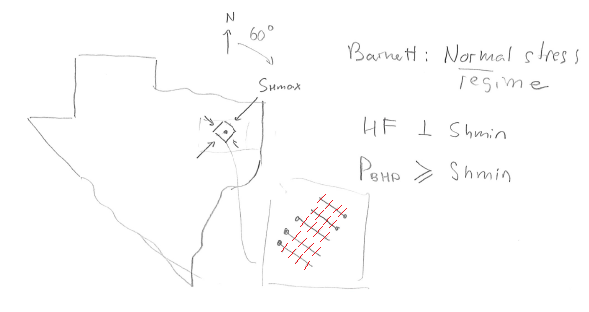 N
60°
SHmax
Barnett: Normal stress
regime
HF ⊥ Shmin
PBHP ⩾ Shmin